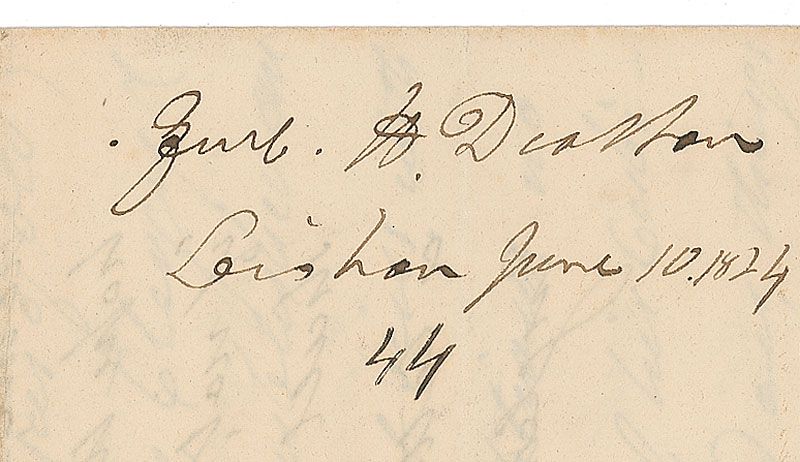 Genl. H. Dearborn
Lisbon June 10. 1824
44